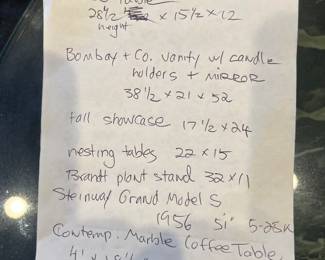 Table
28 1/2 x 15 1/2 x 12
height
Bombay + Co. vanity w/ candle
holders + MIRROR
38 1/2 x 21 x 52
tall showcase 17 1/2 x 24
nesting tables 22 x 15
Brandt plant stand 32 x 11
Steinway Grand Model S
1956 5'1" 5-25K
Contemp. Marble Coffee Table,
4' x